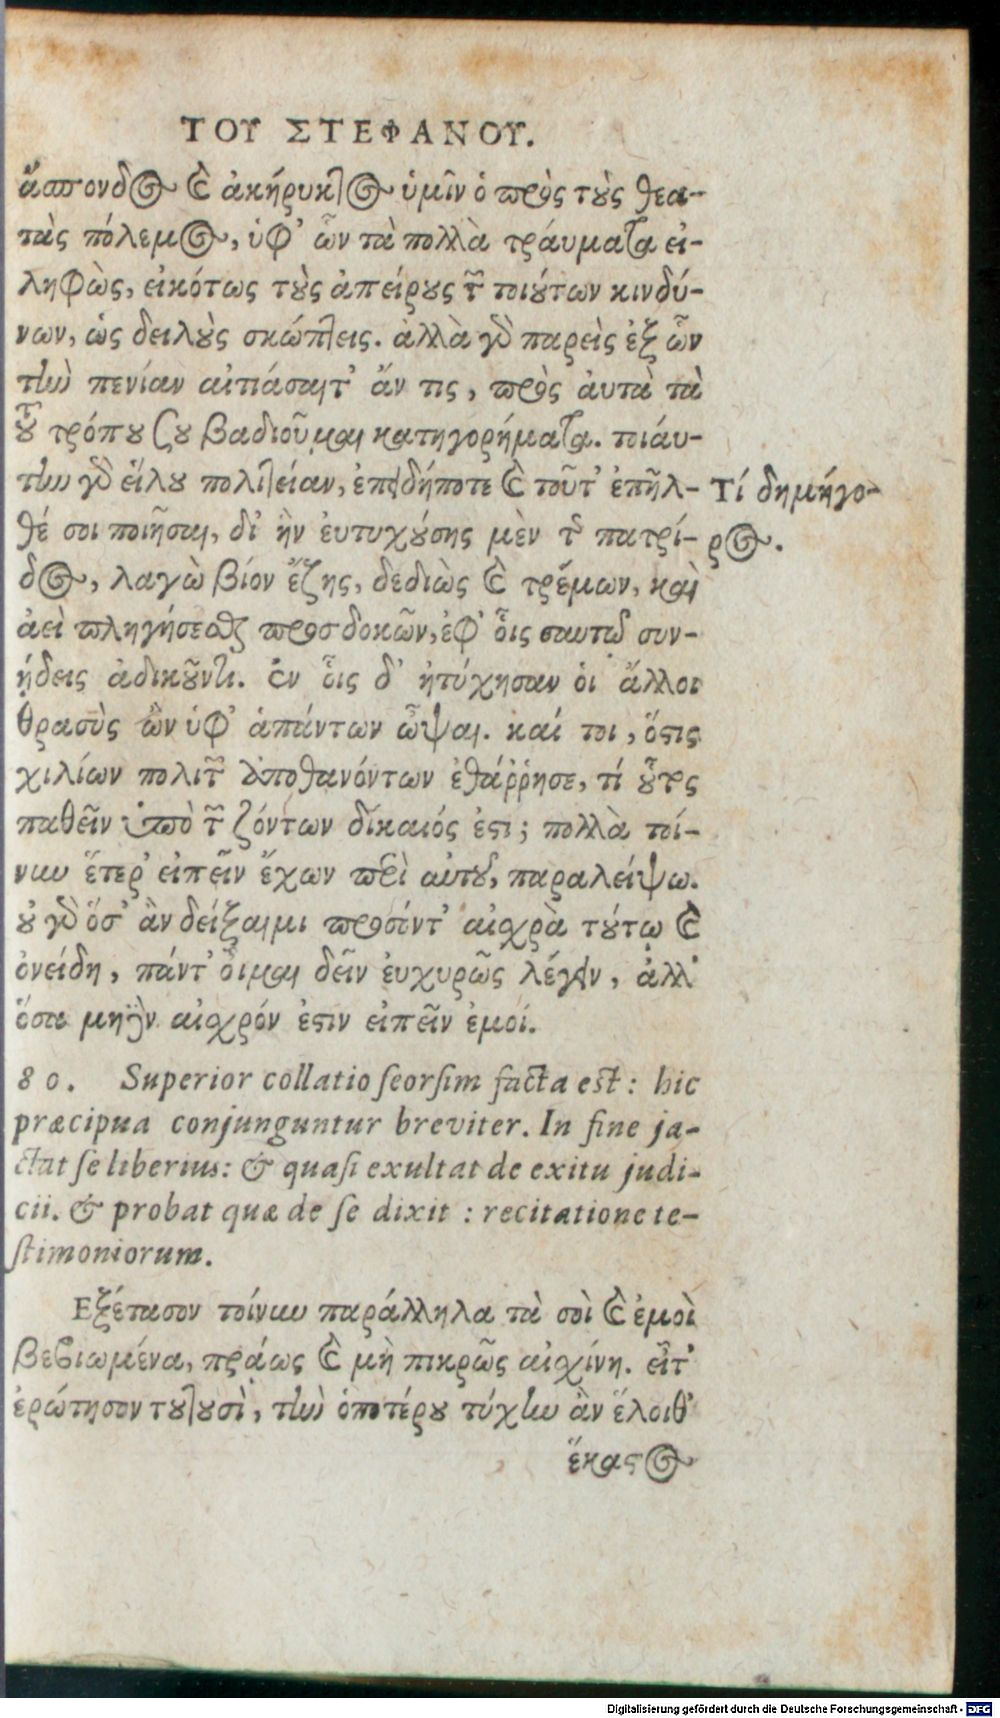 ΤΟΥ ΣΤΕΦΑΝΟΥ.
ἄσπονδος καὶ ἀκήρυκτος ὑμῖν ὁ πρὸς τοὺς θεα-
τὰς πόλεμος, ὑφ' ὧν τὰ πολλὰ τράυματα εἰ-
ληφὼς, εἰκότως τοὺς ἀπείρους τῶν τοιούτων κινδύ-
νων, ὡς δειλοὺς σκώπτεις. ἀλλὰ γὸ παρεὶς ἐξ ὧν
τὴν πενίαν αἰτιάσαιτ' ἄν τις, πρὸς ἀυτὰ τὰ
τοῦ τρόπου σου βαδιοῦμαι κατηγορήματα. τοιάυ-
την γὸ εἵλου πολιτείαν, ἐπειδήποτε καὶ τοῦτ' ἐπῆλ-
Τί δημήγο-
θέ σοι ποιῆσαι, δι' ἣν ἐυτυχούσης μὲν τῆς πατρί-
ρος.
δος, λαγὼ βίον ἔζης, δεδιὼς καὶ τρέμων, καὶ
ἀεὶ πληγήσεσθαι προσδοκῶν, ἐφ' οἷς σαυτῷ συν-
ῄδεις ἀδικοῦντι. ἐν οἷς δ' ἠτύχησαν οἱ ἄλλοι
θρασὺς ὢν ὑφ' ἁπάντων ὦψαι. καί τοι, ὅστις
χιλίων πολιτῶν ἀποθανόντων ἐθάῤῥησε, τί οὗτος
παθεῖν ὑπὸ τῶν ζόντων δίκαιός ἐστι; πολλὰ τοί-
νυν ἕτερ' εἰπεῖν ἔχων περὶ αὐτοῦ, παραλείψω.
οὐ γὸ ὅσ' ἂν δείξαιμι προσόντ' αἰσχρὰ τούτῳ καὶ
ὀνείδη, πάντ' οἶμαι δεῖν ἐυχυρῶς λέγειν, ἀλλ'
ὅσα μηδὲν αἰσχρόν ἐστιν εἰπεῖν ἐμοί.
80. Superior collatio seorsim facta est: hic
præcipua conjunguntur breviter. In fine ja-
ctat se liberius: & quasi exultat de exitu judi-
cii. & probat quæ de se dixit: recitatione te-
stimoniorum.
Εξέτασον τοίνυν παράλληλα τὰ σοὶ καὶ ἐμοὶ
βεβιωμένα, πρᾴως καὶ μὴ πικρῶς αἰσχίνη. εἶτ'
ἐρώτησον τουτουσὶ, τὴν ὁποτέρου τύχην ἂν ἕλοιθ'
ἕκαστος
Digitalisierung gefördert durch die Deutsche Forschungsgemeinschaft - DFG